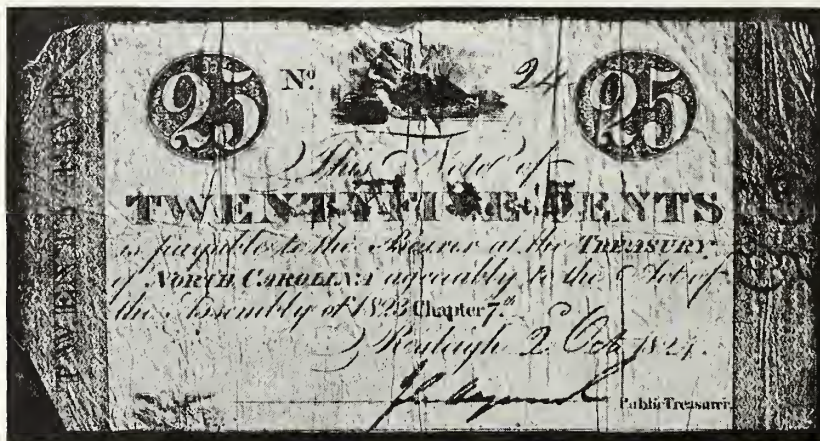 25 Nº. 24 25
This Note of
TWENTY FIVE CENTS
is payable to the Bearer at the TREASURY
of NORTH CAROLINA agreeably to the Act of
the Assembly of 1823 Chapter 7th
Raleigh 2 Oct 1824.
Public Treasurer.